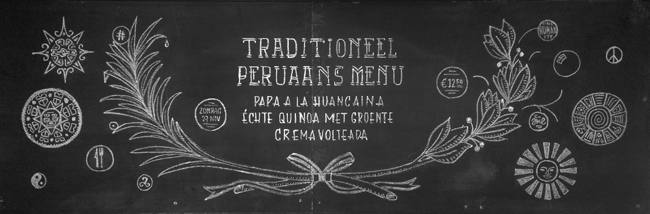 #
TRADITIONEEL
PERUAANS MENU
PAPA A LA HUANCAINA
ÉCHTE QUINOA MET GROENTE
CREMA VOLTEADA
ZONDAG
27 NOV
€12.50
HUMAN